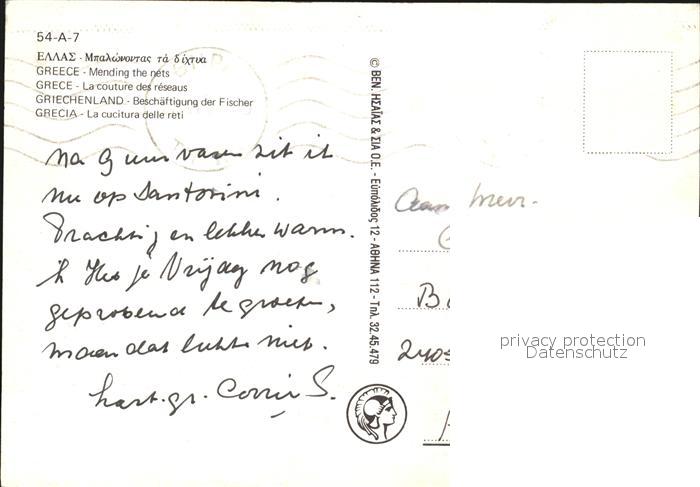 54-A-7
ΕΛΛΑΣ - Μπαλώνοντας τά δίχτυα
GREECE - Mending the nets
GRECE - La couture des réseaux
GRIECHENLAND - Beschäftigung der Fischer
GRECIA - La cucitura delle reti
Na 9 uur varen zit ik
nu op Santorini.
Prachtig en lekker warm.
Ik Heb je Vrijdag nog
geprobeerd te groeten,
maar dat lukte niet.
hart. gr. Corrie S.
© ΒΕΝ. ΗΣΑΪΑΣ & ΣΙΑ Ο.Ε. - Εὐπόλιδος 12 - ΑΘΗΝΑ 112 - Τηλ. 32.45.479
Aan Mevr.
B
privacy protection
Datenschutz